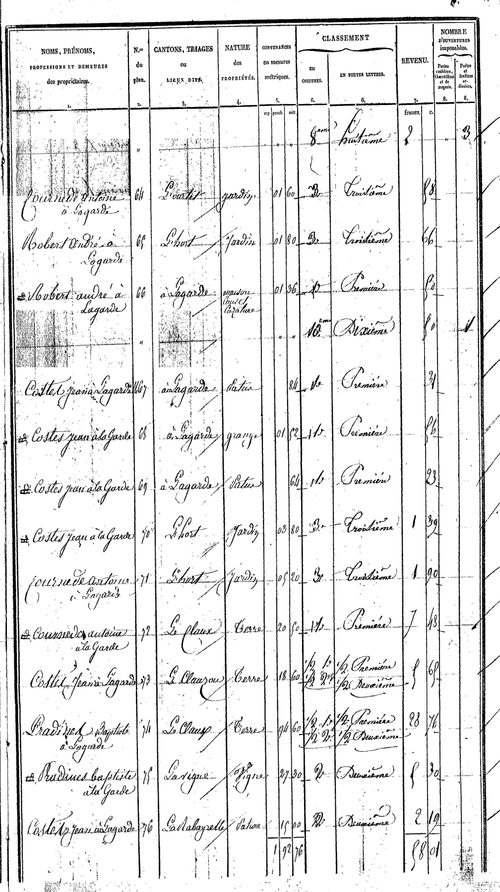 NOMS, PRÉNOMS, PROFESSIONS ET DEMEURES des propriétaires. N.os du plan. CANTONS, TRIAGES ou LIEUX DITS. NATURE des PROPRIÉTÉS. CONTENANCES en mesures métriques. CLASSEMENT en CHIFFRES. EN TOUTES LETTRES. REVENU. NOMBRE D'OUVERTURES imposables.
1. 2. 3. 4. 5. 6. 6. 7. 8. 8.
francs. c.
8eme huitième 2 3
Cournède antoine à Lagarde 64 L'ortet jardin 01 60 3e Troisième 58
Robert André à Lagarde 65 L'hort Jardin 01 80 3e Troisième 66
Robert andré à Lagarde 66 à Lagarde maison 01 36 1e Première 50
10eme Dixième 50 1
Costes jean à Lagarde 67 à Lagarde Patus 84 1e Première 31
Costes jean à la Garde 68 à Lagarde grange 01 52 1e Première 56
Costes jean à la Garde 69 à Lagarde Patus 64 1e Première 23
Costes jean à la Garde 70 L'hort Jardin 03 80 3e Troisième 1 39
Cournède antoine à Lagarde 71 L'hort Jardin 05 20 3e Troisième 1 90
Cournède antoine à la Garde 72 Le Claux Terre 20 50 1e Première 7 48
Costes jean à Lagarde 73 Le Clauzou Terre 18 60 1/2 1e 1/2 2e 1/2 Première 1/2 Deuxième 5 69
Pradines Baptiste à Lagarde 74 Le Claux Terre 94 60 1/2 1e 1/2 2e 1/2 Première 1/2 Deuxième 28 76
Pradines baptiste à la Garde 75 La vigne Vigne 27 30 2e Deuxième 5 30
Costes jean à Lagarde 76 Pature 15 00 2e Deuxième 2 19
1 92 76 58 01